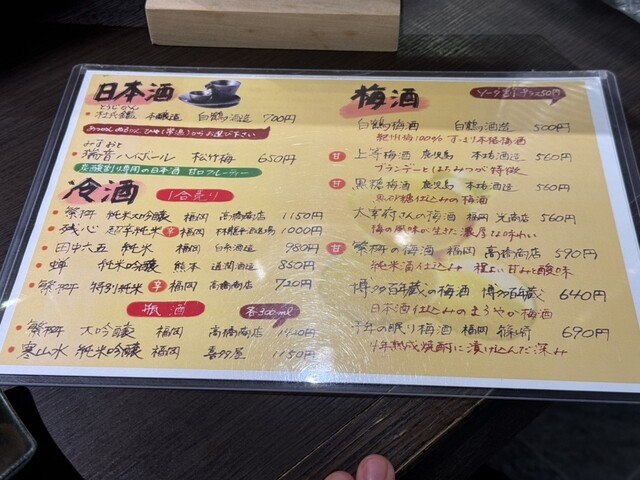 日本酒
とうじかん
・杜氏鑑 本醸造 白鶴酒造 700円
あつかん ぬるかん ひや(常温)からお選び下さい
みずおと
・瑞音ハイボール 松竹梅 650円
炭酸割り専用の日本酒 甘口フルーティー
冷酒 1合売り
・繁桝 純米大吟醸 福岡 高橋商店 1150円
・残心 超辛純米 辛 福岡 1000円
・田中六五 純米 福岡 白糸酒造 980円
・蝉 純米吟醸 熊本 通潤酒造 850円
・繁桝 特別純米 辛 福岡 高橋商店 720円
瓶酒 各300ml
・繁桝 大吟醸 福岡 高橋商店 1420円
・寒山水 純米吟醸 福岡 喜多屋 1150円
梅酒 ソーダ割りプラス50円
白鶴梅酒 白鶴酒造 500円
紀州梅100% すっきり本格梅酒
甘 上等梅酒 鹿児島 本坊酒造 560円
ブランデーとはちみつが特徴
甘 黒糖梅酒 鹿児島 本坊酒造 560円
黒砂糖仕込みの梅酒
太宰府さんの梅酒 福岡 光商店 560円
梅の風味が生きた濃厚な味わい
甘 繁桝の梅酒 福岡 高橋商店 590円
純米酒仕込み 程よい甘みと酸味
博多百年蔵の梅酒 博多百年蔵 640円
日本酒仕込みのまろやか梅酒
千年の眠り梅酒 福岡 篠崎 690円
熟成焼酎に漬け込んだ深み